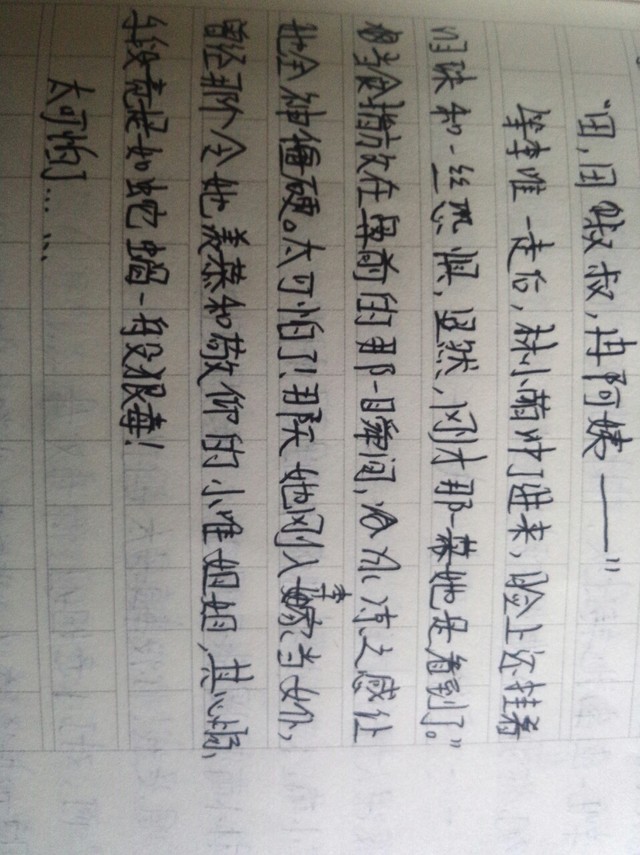 “田,田叔叔,冉阿姨——”
等李唯一走后,林小萌冲了进来,脸上还挂着
泪珠和一丝恐惧,显然,刚才那一幕她是看到了。”
枪放在鼻前的那一瞬间,冰冻之感让
她全神僵硬。太可怕了!那天她刚入李家当女仆,
曾经那个令她羡慕和敬仰的小唯姐姐,其心肠,
手段竟是如蛇蝎一般狠毒!
太可怕了……